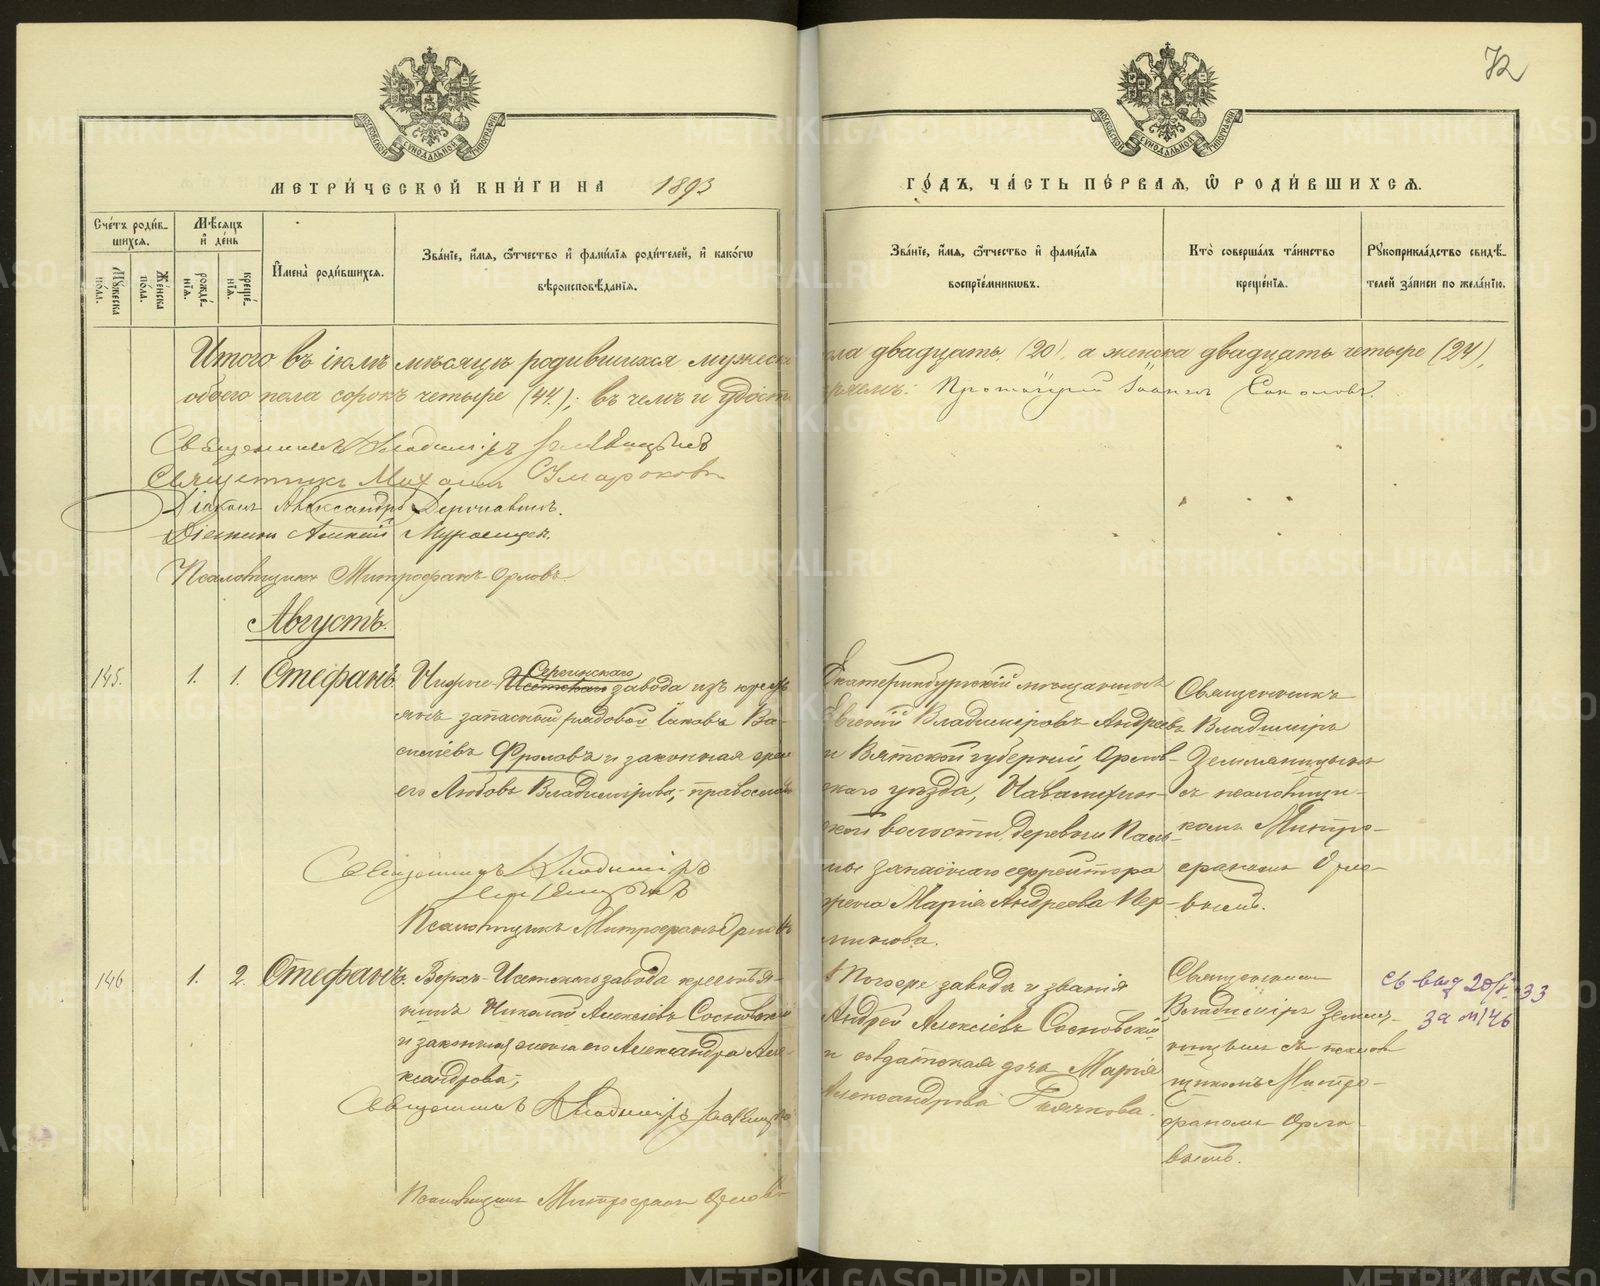 72
МОСКОВСКОЙ СѴНОДАЛЬНОЙ ТИПОГРАФІИ
МОСКОВСКОЙ СѴНОДАЛЬНОЙ ТИПОГРАФІИ
МЕТРИ́ЧЕСКОЙ КНИ́ГИ НА 1893 ГО́ДЪ, ЧА́СТЬ ПЕ́РВАЯ, Ѡ РОДИ́ВШИХСѦ.
Сче́тъ роди́в-
шихсѧ.
Мꙋ́жеска
по́ла.
Же́нска
по́ла.
Мѣ́сѧцъ
и҆ де́нь
рожде́-
нїѧ.
креще́-
нїѧ.
И҆мена̀ роди́вшихсѧ.
Зва́нїе, и҆́мѧ, ѻ҆́тчество и҆ фами́лїѧ роди́телей, и҆ како́гѡ
вѣроисповѣ́данїѧ.
Зва́нїе, и҆́мѧ, ѻ҆́тчество и҆ фами́лїѧ
воспрїе́мникѡвъ.
Кто̀ соверша́лъ та́инство
креще́нїѧ.
Рꙋкоприкла́дство свидѣ́-
телей за́писи по жела́нїю.
Итого въ іюлѣ мѣсяцѣ родившихся мужеска пола двадцать (20), а женска двадцать четыре (24),
обоего пола сорокъ четыре (44); въ чемъ и удостовѣряемъ: Протоіерей Іоаннъ Соколовъ.
Священникъ Владиміръ Земляницынъ
Священникъ Михаилъ
Діаконъ Александръ Державинъ.
Діаконъ
Псаломщикъ Митрофанъ Орловъ
Августъ.
145. 1. 1. Стефанъ.
Нижне-Исетскаго Сергинскаго завода изъ кресть-
янъ запасный рядовой Іаковъ Ва-
силіевъ Фроловъ и законная жена
его Любовь Владимірова; православные
Священникъ Владиміръ
Земляницынъ
Псаломщикъ Митрофанъ Орловъ
Екатеринбургскій мѣщанинъ
Евгеній Владиміровъ Андреевъ
и Вятской губерніи, Орлов-
скаго уѣзда,
волости, деревни
запаснаго ефрейтора
жена Марія Андреева Пер-
минова.
Священникъ
Владиміръ
Земляницынъ
съ псаломщи-
комъ Митро-
фаномъ Орло-
вымъ.
146 1. 2. Стефанъ.
Верхъ-Исетскаго завода крестья-
нинъ Николай Алексіевъ Сосновскій
и законная жена его Александра Але-
ксандрова;
Священникъ Владиміръ Земляницынъ
Псаломщикъ Митрофанъ Орловъ
Того же завода и званія
Андрей Алексіевъ Сосновскій
и солдатская дочь Марія
Александрова
Священникъ
Владиміръ Земля-
ницынъ съ псалом-
щикомъ Митро-
фаномъ Орло-
вымъ.
св выд 20/I-33
за №146
METRIKI.GASO-URAL.RU